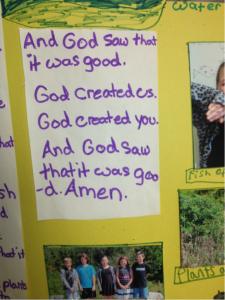 water
And God saw that
it was good.
God created us.
God created you.
And God saw
that it was goo
-d. Amen.
Fish of
Plants a
hat
sh
d
hat it
plants